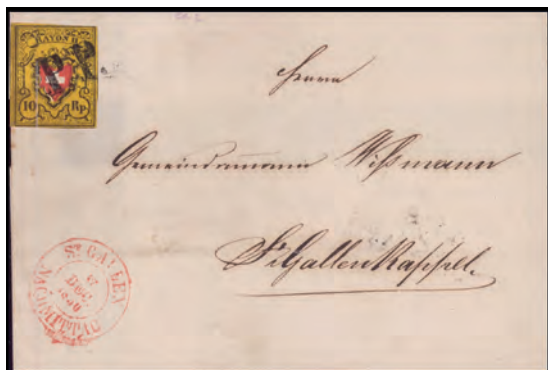 RAYON II
PP
10 Rp
Herrn
Gemeindammann Wißmann
St. Gallen Kappel.
ST GALLEN
17
DEC.
1850
NACHMITTAG